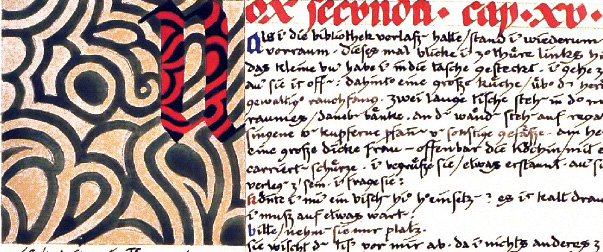 Nox secunda · cap · xv ·
als i die bibliothek verlass hatte / stand i wiederum
vorraum · dieses mal blicke i z thüre links h
das kleine bu habe i in die tasche gesteckt · i gehe z
au sie ist off · dahinter eine große küche / üb d herd
gewaltig rauchfang · zwei lange tische steh in d
raumes / daneb bänke · an d wänd steh auf rega
singene v kupferne pfan v sonstige gefäße · am he
eine große dicke frau - offenbar die köchin mit e
carriert schürze · i begrüße sie / etwas erstaunt · au s
verleg z sein · i frage sie :
i mi ein hi hinsetz ? es ist kalt drau
i muß auf etwas wart ·
bitte / nehm sie nur platz ·
sie wischt d tis vor mir ab · da i nichts anderes z